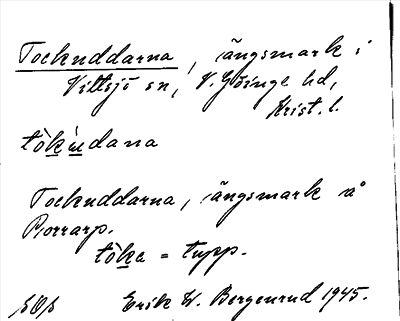 Tocknddarna, ängsmark i
Vittsjö sn, V. Göinge hd,
Krist. l.
tòkùdana
Tocknddarna, ängsmark å
Porrarp.
tòka = tupp.
Erik W. Bergenrud 1945.